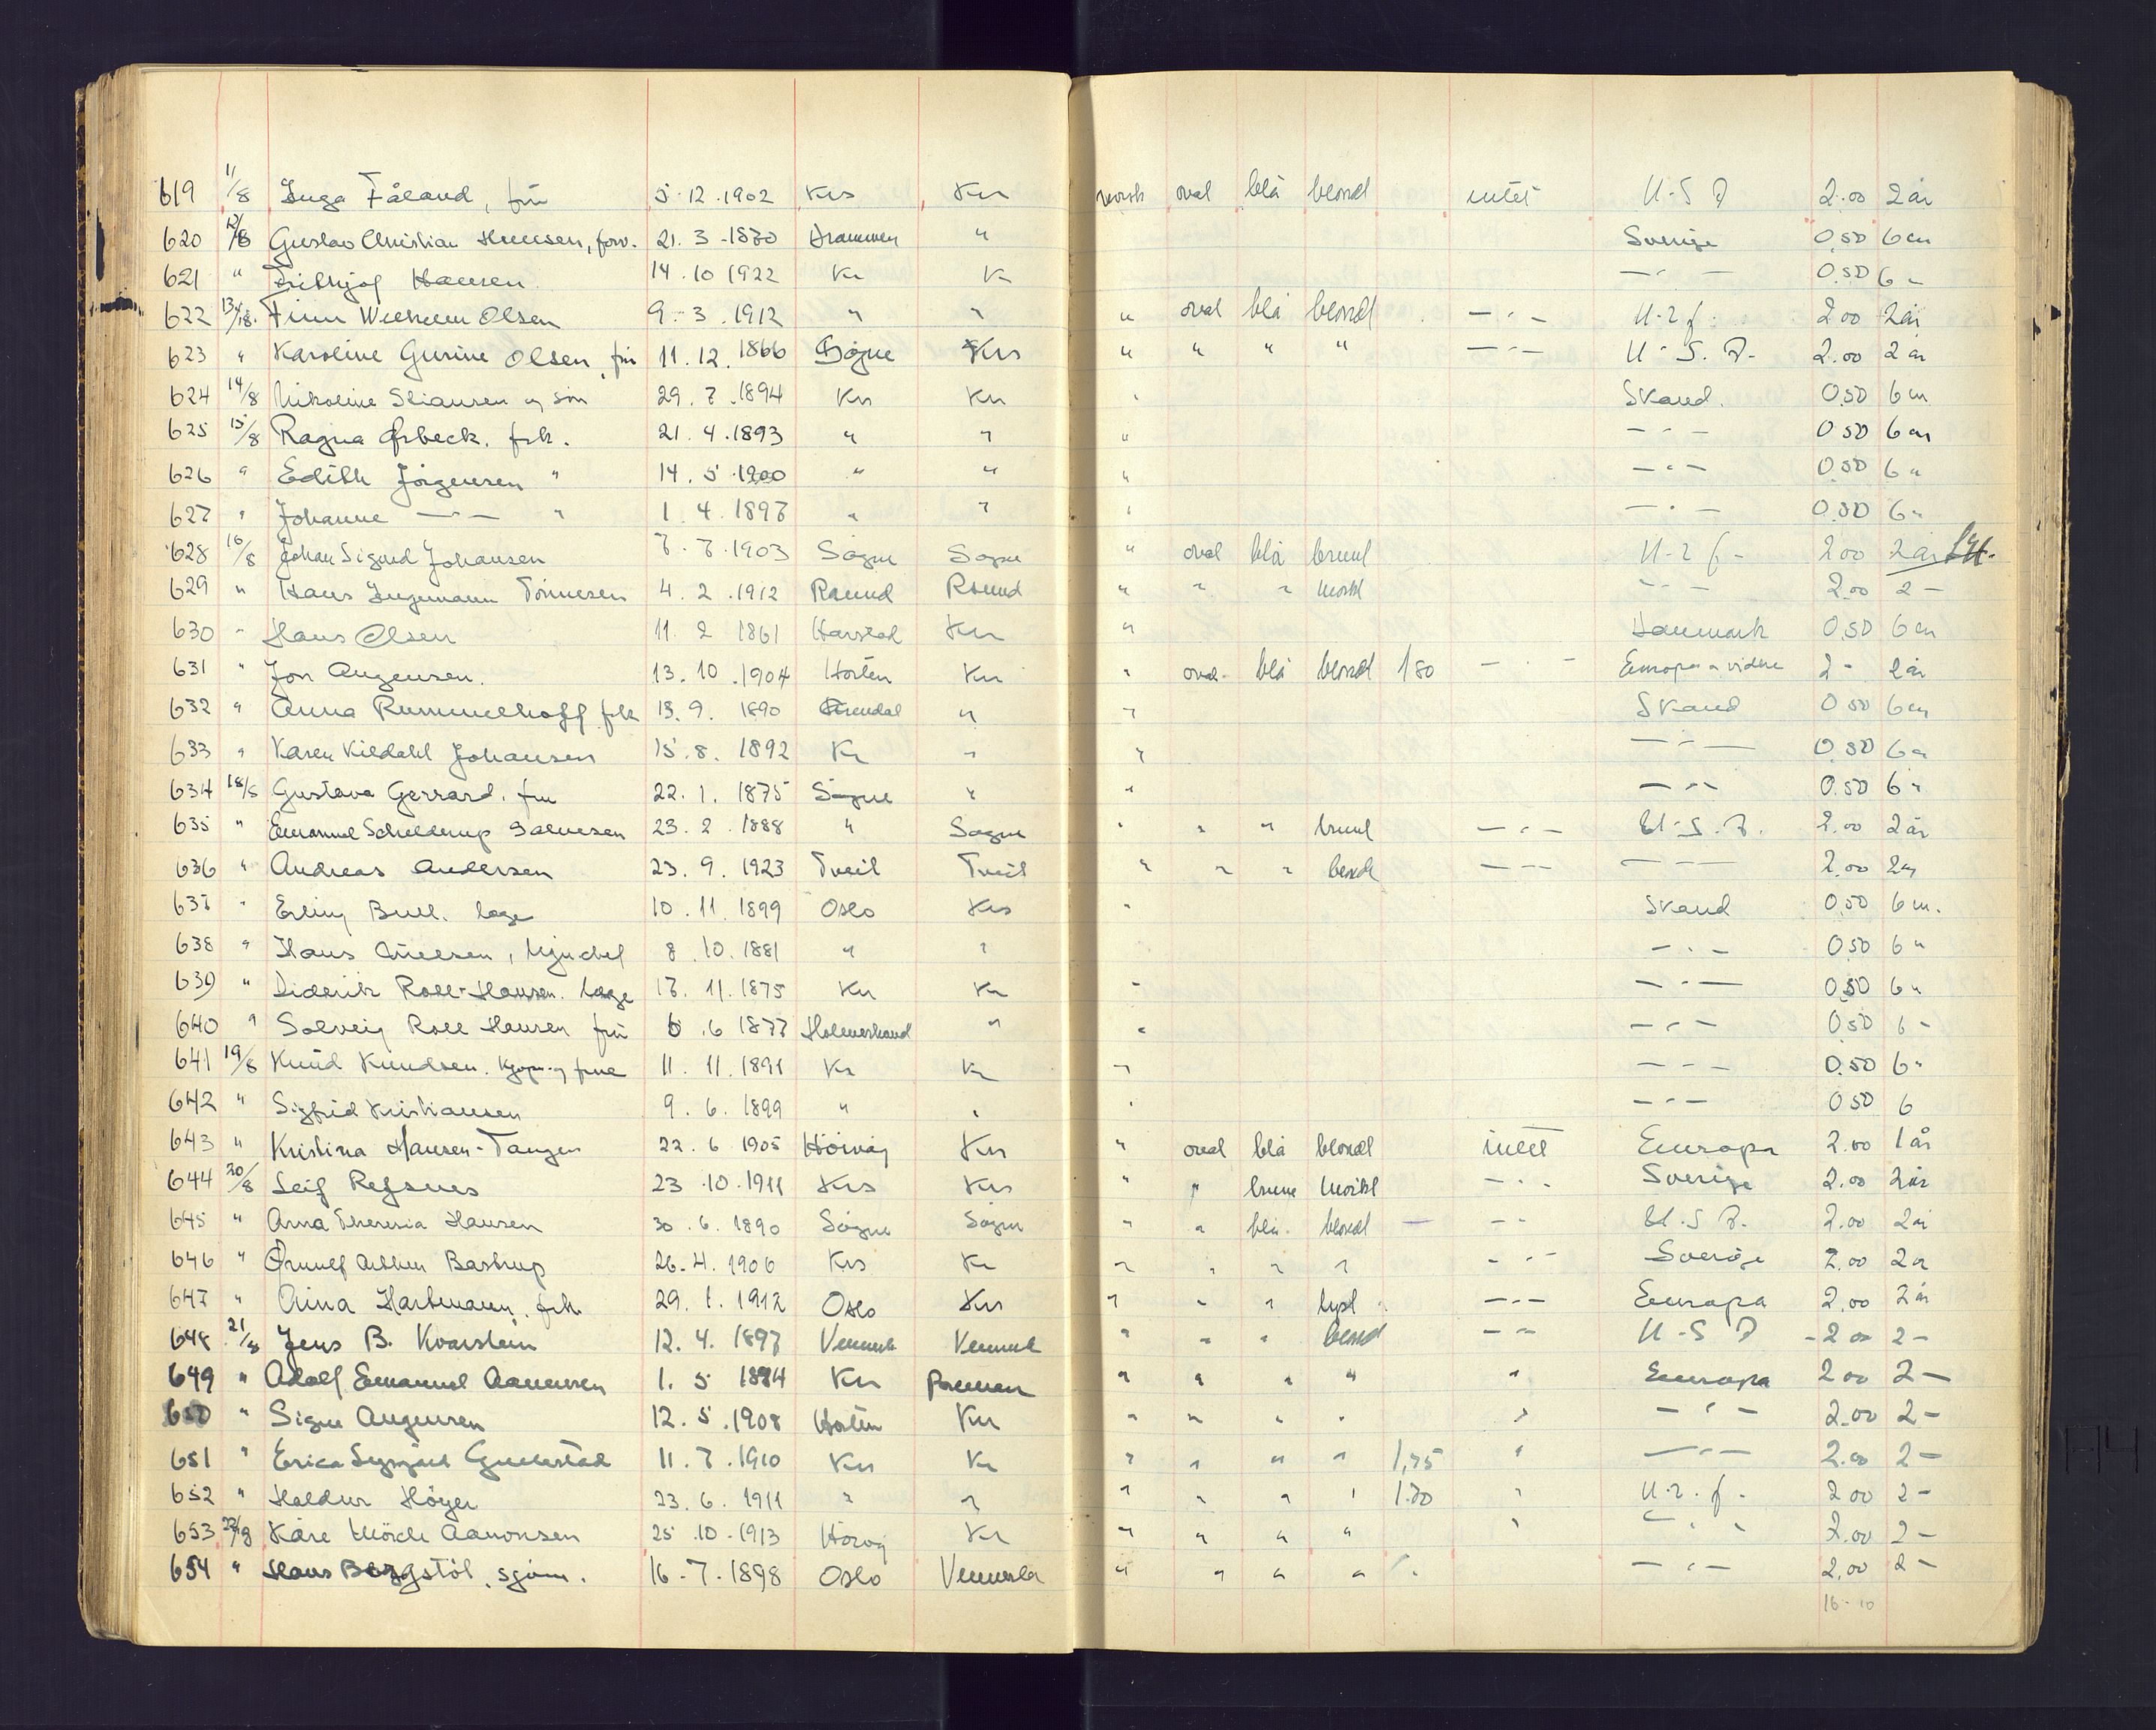 619 11/8 Inga Fåland, frü 5.12.1902 Krs Kr norsk oval blå blond intet U.S.A 2.00 2 år
620 12/8 Gustav Christian Hansen, forv. 21.3-1870 Drammen " Sverige 0,50 6 m
621 " Fridtjof Hansen 14.10 1922 Kr Kr — " — 0.50 6 "
622 13/8. Finn Wilhelm Olsen 9-3.1912 " " " oval blå blond — " — U.r.f. 2.00 2 år
623 " Karoline Gurine Olsen, frü 11.12.1866 Søgne Krs " " " " — " — U.S.A. 2.00 2 år
624 14/8 Nikoline Stiansen og søn 29.7.1894 Kr Kr " Skand. 0.50 6 m
625 15/8 Ragna Ørbeck. frk. 21.4.1893 " " " — " — 0.50 6 m
626 " Edith Jörgensen " 14.5.1900 " " " — " — 0.50 6 "
627 " Johanne — " — " 1.4.1897 " " " — " — 0.50 6 "
628 16/8 Johan Sigurd Johansen 7.7.1903 Sögne Sögne " oval blå brunt U-r f- 2.00 2 år
629 " Hans Ingemann Tönnesen 4.2.1912 Raund Raund " " " mörkt — " — 2.00 2 —
630 " Hans Olsen 11.2 1861 Harstad Kr " Danmark 0.50 6 m
631 " Jon Augensen. 13.10.1904 Horten Kr " oval blå blond 180 — " — Europa o videre 2- 2 år
632 " Anna Rummelhoff frk 13.9. 1890 Arendal " " Skand 0.50 6 m
633 " Karen Kildahl Johansen 15.8. 1892 Kr " " — " — 0.50 6 "
634 18/8 Gustava Gerrard. frü 22.1. 1875 Søgne " " — " — 0.50 6 "
635 " Emanuel Schelderup Salvesen 23.2.1888 " Søgne " " " brunt — " — U.S.A. 2.00 2 år
636 " Andreas Andersen 23.9.1923 Tveit Tveit " " " blond — " — — " — 2.00 2 "
637 " Erling Bull. læge 10.11.1899 Oslo Krs " Skand 0.50 6 m.
638 " Hans Nielsen, 8.10.1881 " " " — " — 0.50 6 "
639 " Diderik Roll-Hansen. læge 17.11.1875 Kr Kr " — " — 0.50 6 "
640 " Solveig Roll Hansen frü 6.6 1877 Holmestrand " " — " — 0.50 6 -
641 19/8 Knüd Knudsen. kjøpm. og frue 11.11.1891 Kr Kr " — " — 0.50 6 "
642 " Sigfrid Kristiansen 9.6.1899 " " " — " — 0.50 6
643 " Kristina Hansen-Tangen 22.6 1905 Höivåg Kr " oval blå blond intet Europa 2.00 1 år
644 20/8 Leif Refsnes 23.10.1911 Krs Krs " " brune mörkt — " — Sverige 2.00 2 år
645 " Anna Theresia Hansen 30.6.1890 Sögne Sögne " " blå blond — " — U.S.A. 2.00 2 år
646 " Ørnulf Arthur Bastrup 26.4.1906 Krs Kr " " " " — " — Sverige 2.00 2 "
647 " Aina Hartmann. frk. 29.1.1912 Oslo Krs " " " lyst — " — Europa 2.00 2 år
648 21/8 Jens B. Kvarstein 12.4.1897 Vennesla Vennesla " " " blond — " — U-S A - 2.00 2 -
649 " Adolf Emanuel Aanensen 1.5 1894 Kr " " " " " Europa 2.00 2 —
650 " Signe Augensen 12.5.1908 Horten Kr " " " " " — " — 2.00 2 -
651 " Erica 11.7.1910 Kr Kr " " " " 1,75 " — " — 2.00 2 -
652 " Haldur Höyer 23.6.1911 " " " " " " 1.80 " U.r.f. 2.00 2 -
653 22/8 Kåre Mörch Aanonsen 25.10.1913 Hövåg Kr " " " " " — " — 2.00 2 -
654 " Hans Borgstöl, sjöm. 16-7-1898 Oslo Vennesla " " " " — " — 2.00 2 -